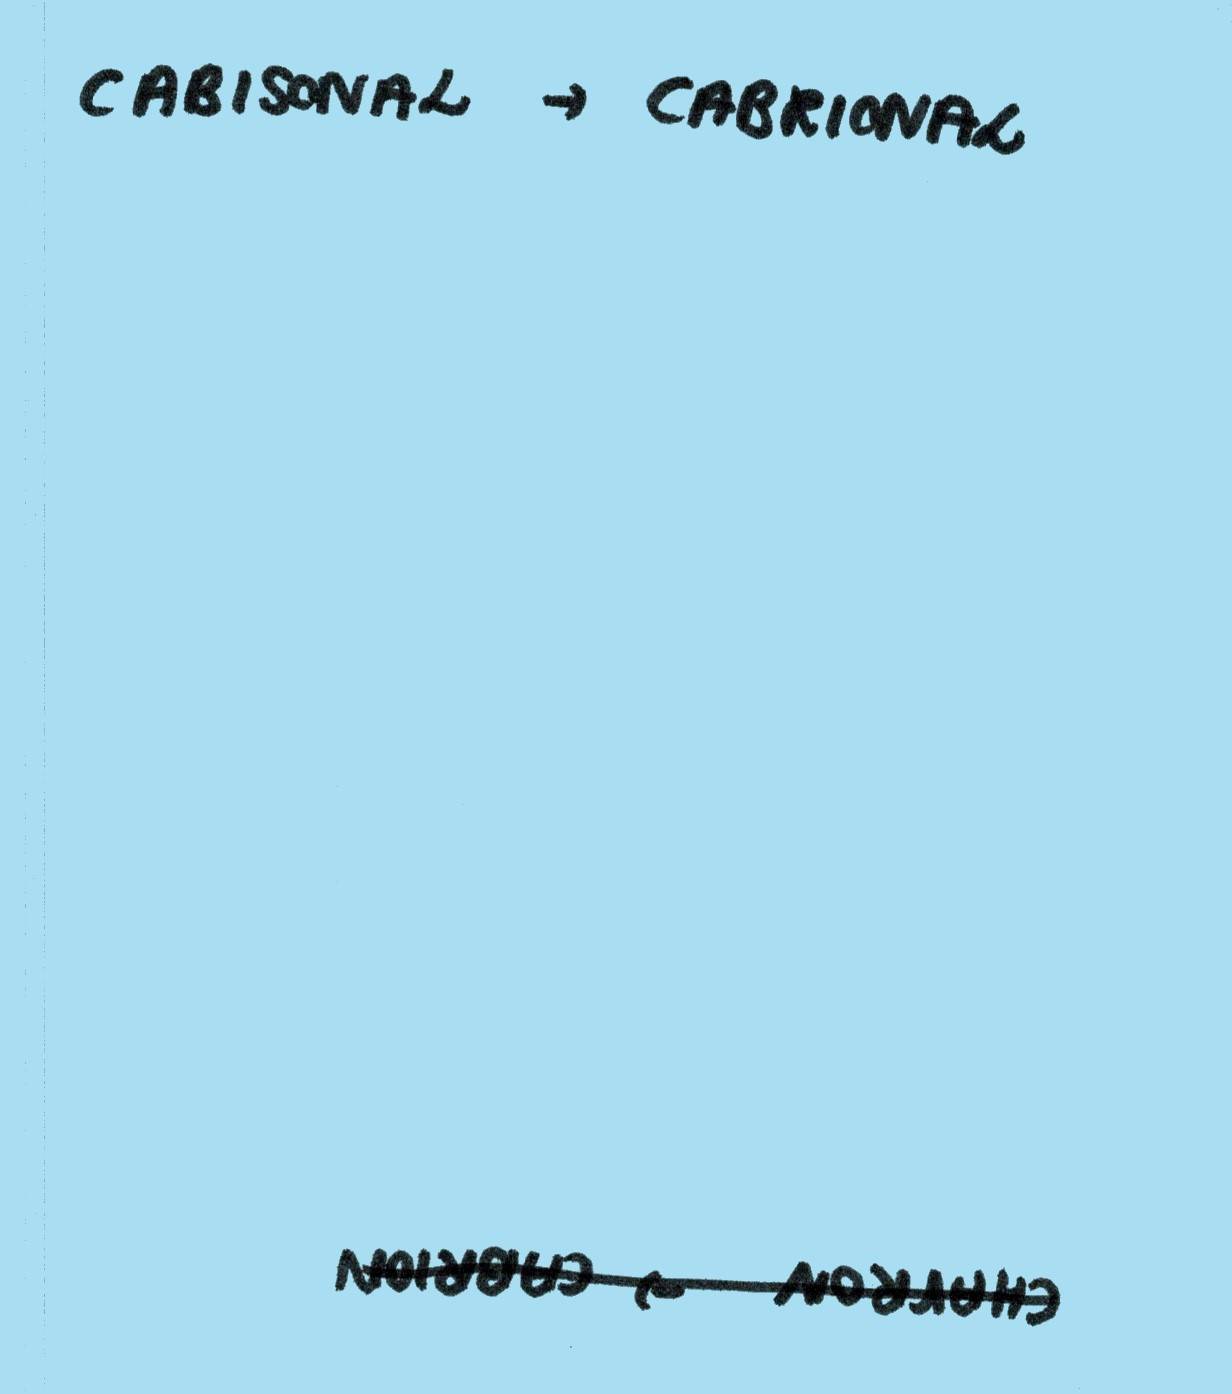 CABISONAL → CABRIONAL
CHAVRON → CABRION